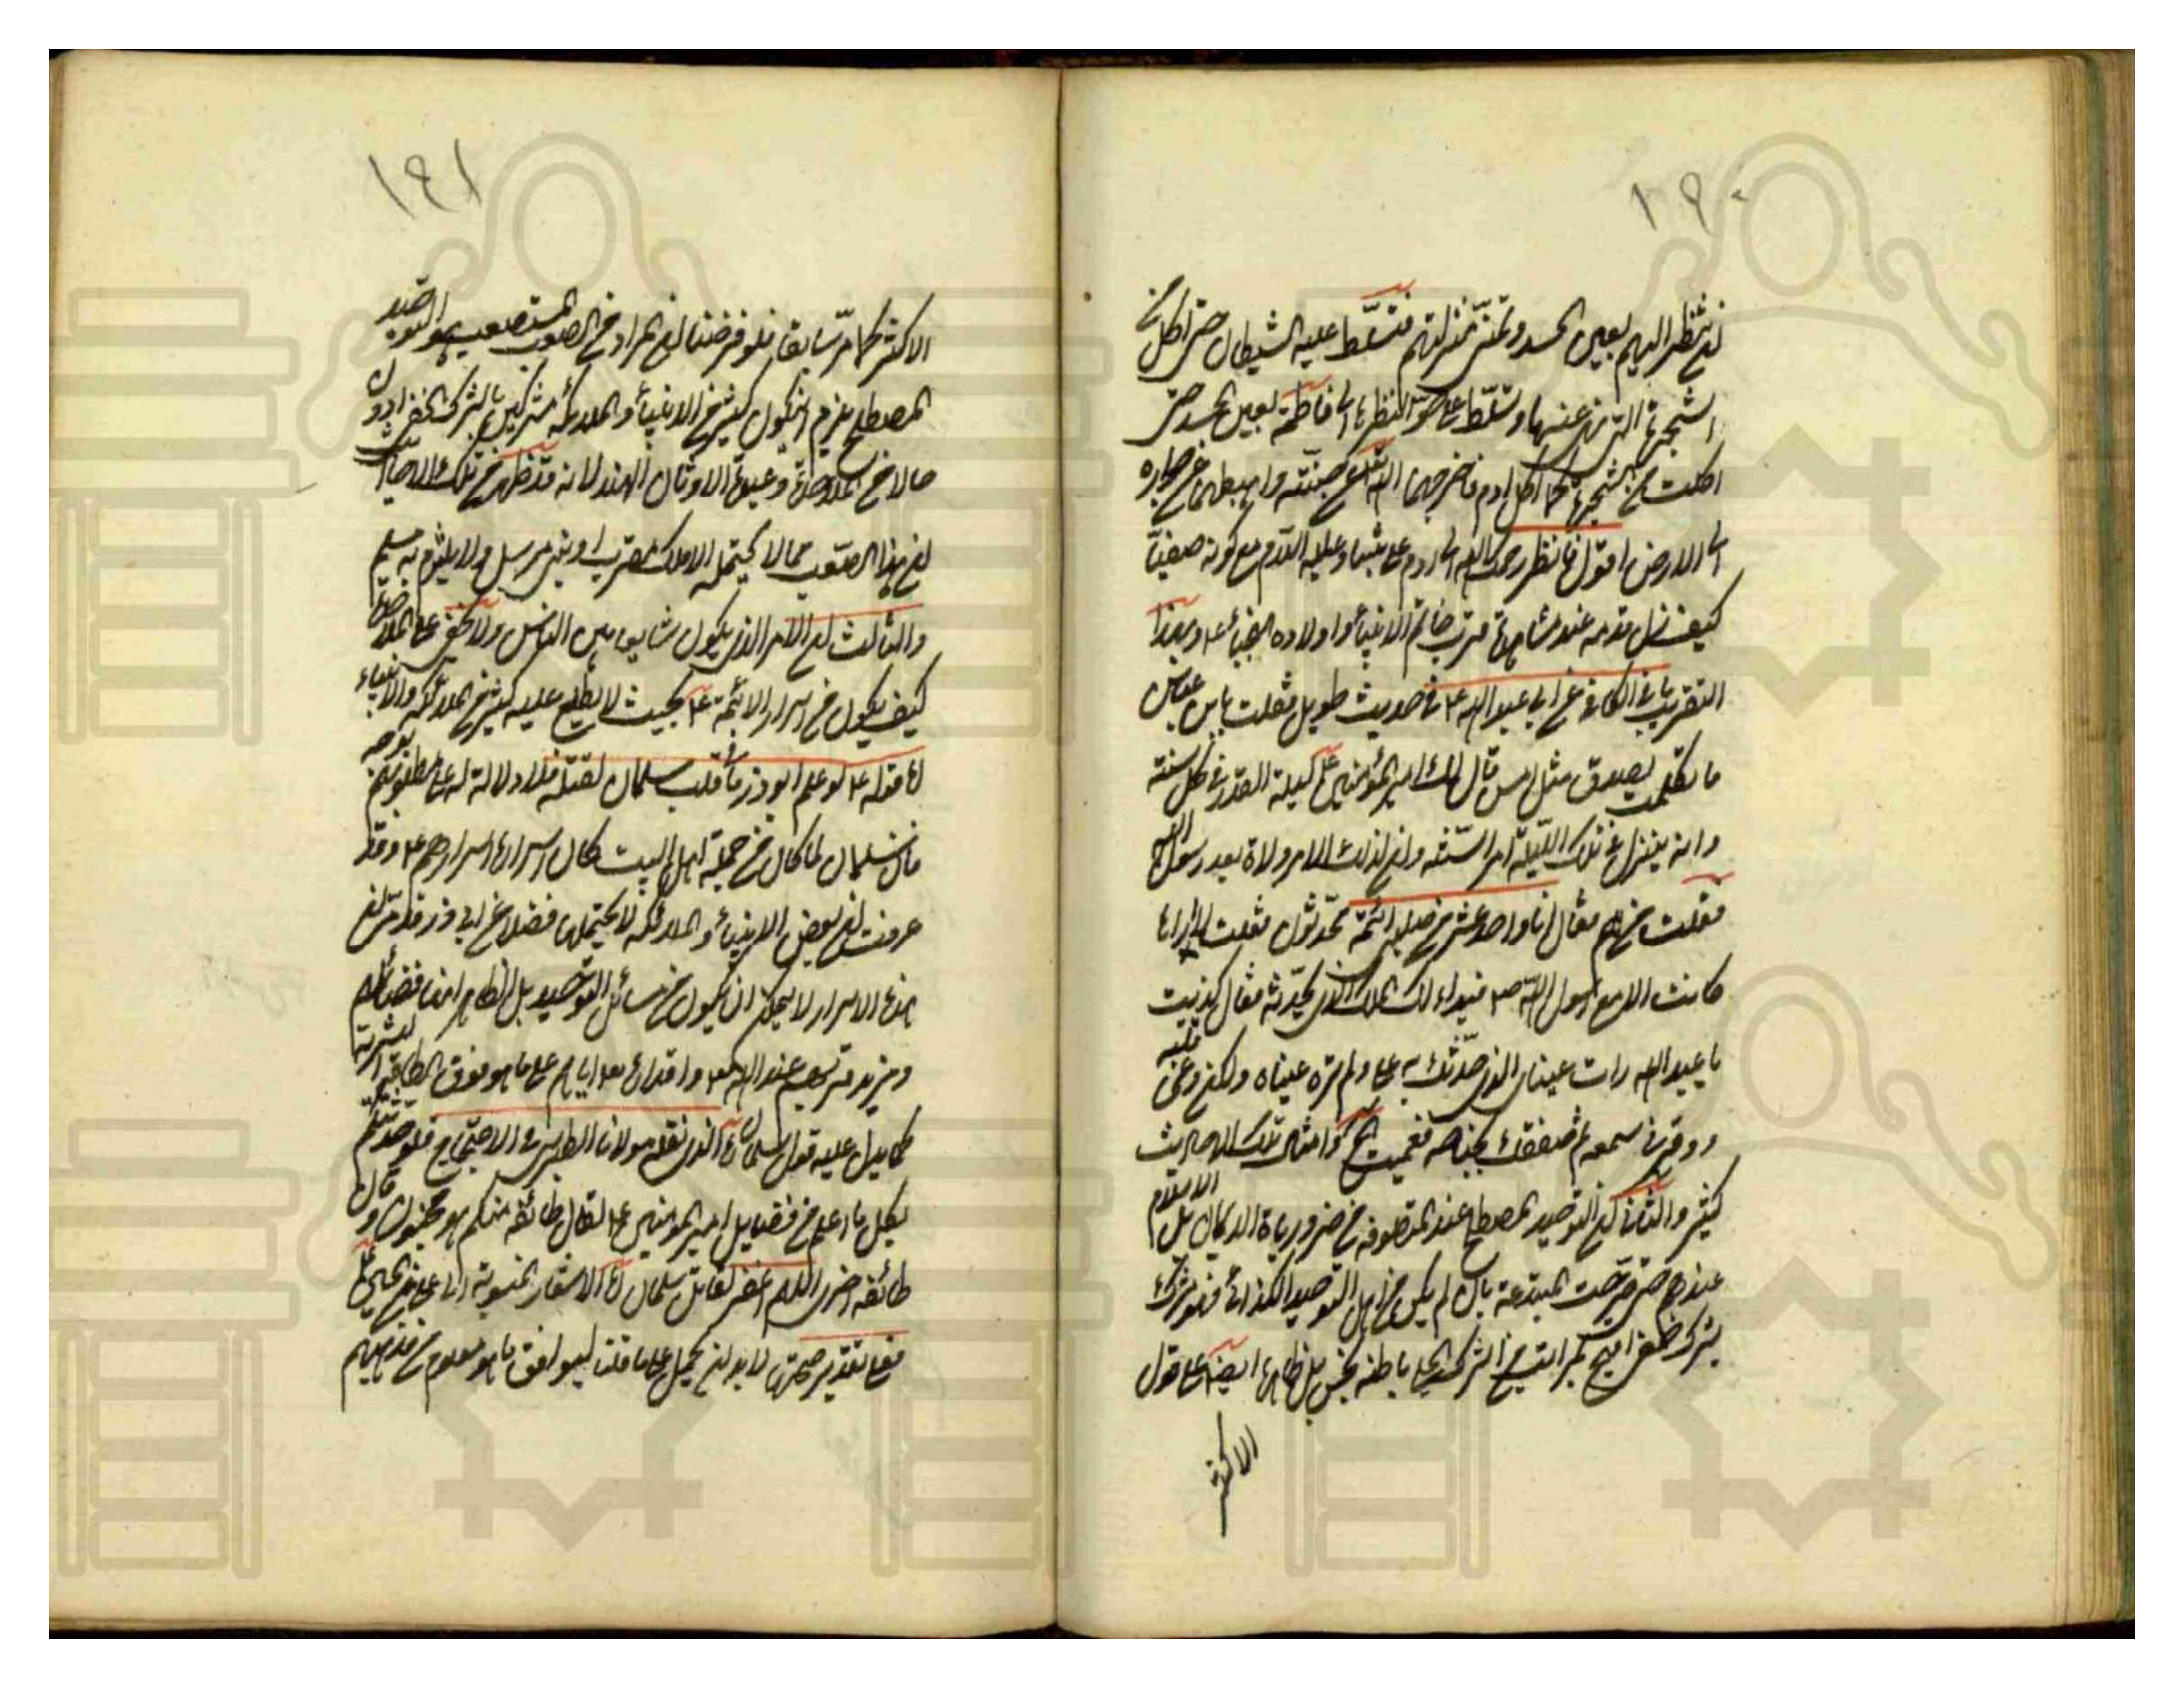 ١٩٠
لم تنظر اليهم بعين الحسد وتمنى منزلتهم فتسلط عليه الشيطان حتى اكل من
الشجرة التى نهى عنها وتسلط على حوا لنظرها الى فاطمة بعين الحسد حتى
اكلت من الشجرة كما اكل ادم فاخرجهما الله تعالى عن جنته واهبطهما عن جواره
الى الارض اقول فانظر رحمك الله الى ادم على نبينا وعليه السلام مع كونه صفيا
كيف نزل قدمه عند مشاهدة قرب خاتم الانبيأ واولاده النجبأ ع وبهذا
التقريب ما فى الكافى عن ابى عبد الله ع فى حديث طويل فقلت يا بن عباس
ما تكلمت بصدق مثل امس قال لك امير المؤمنين على ليلة القدر فى كل سنة
وانه ينزل فى تلك الليلة امر السنة وان لذلك الامر ولاة بعد رسول الله
فقلت من هم فقال انا واحد عشر من صلبى ائمة محدثون فقلت لا اراها
كانت الا مع رسول الله ص فتبدا لك الملك الذى يحدثه فقال كذبت
يا عبد الله رات عيناى الذى حدثك به على ولم تره عيناه ولكن وعى قلبه
ووقر فى سمعه ثم صفقك بجناحه فعميت الخ وامثال تلك الاحاديث
كثير والثانى ان التوحيد المصطلح عند المتصوفه من ضرورياة الايمان بل الاسلام
عندهم حتى صرحت المبتدعة بان لم يكن من اهل التوحيد الكذائى فهو مشرك
بشرك خفى اقبح بمراتب من الشرك الجلى باطنه نجس بل ظاهره ايضا على قول
الاكثر
١٩١
الاكثر كما مر سابقا فلو فرضنا ان المراد من الصعوب المستصعب هو التوحيد
المصطلح يلزم ان يكون كثير من الانبيأ والملائكة مشركين بالشرك الخفى ادون
حالا من الملاحدة وعبدة الاوثان الهند لانه قد ظهر من تلك الاحاديث
ان هذا الصعب مما لا يحتمله الا ملك مقرب او نبى مرسل ولا يلتزم به مسلم
والثالث ان الامر الذى يكون شايعا بين الناس ولا يخفى على الملاحدة
كيف يكون من اسرار الائمة ع بحيث لا يطلع عليه كثير من الملائكه والانبياء
اما قوله ع لو علم ابو ذر ما فى قلب سلمان لقتله فلا دلالة له على مطلوبهم بوجه
فان سلمان لما كان من جملة اهل البيت كان اسراره اسرارهم ع وقد
عرفت ان بعض الانبيأ والملائكه لا يحتملها فضلا عن ابى ذر وقد مر ان
هذه الاسرار لا يمكن ان يكون من مسائل التوحيد بل الظاهر انها فضائلهم
ومزيد قربهم عند الله تعالى واقداره تعالى اياهم على ما هو فوق الطاقة البشرية
كما يدل عليه قول سلمان الذى نقله مولانا الطبرسى فى الاحتجاج فلو حدثتكم
بكل ما اعلم من فضايل امير المؤمنين ع لقال طائفه منكم هو مجنون وقال
طائفه اخرى اللهم اغفر لقاتل سلمان اما الاشعار المنسوبة الى على بن الحسين
فعلى تقدير صحتها لا بد ان يحمل على ما قلنا ليوافق ما هو معلوم من مذهبهم